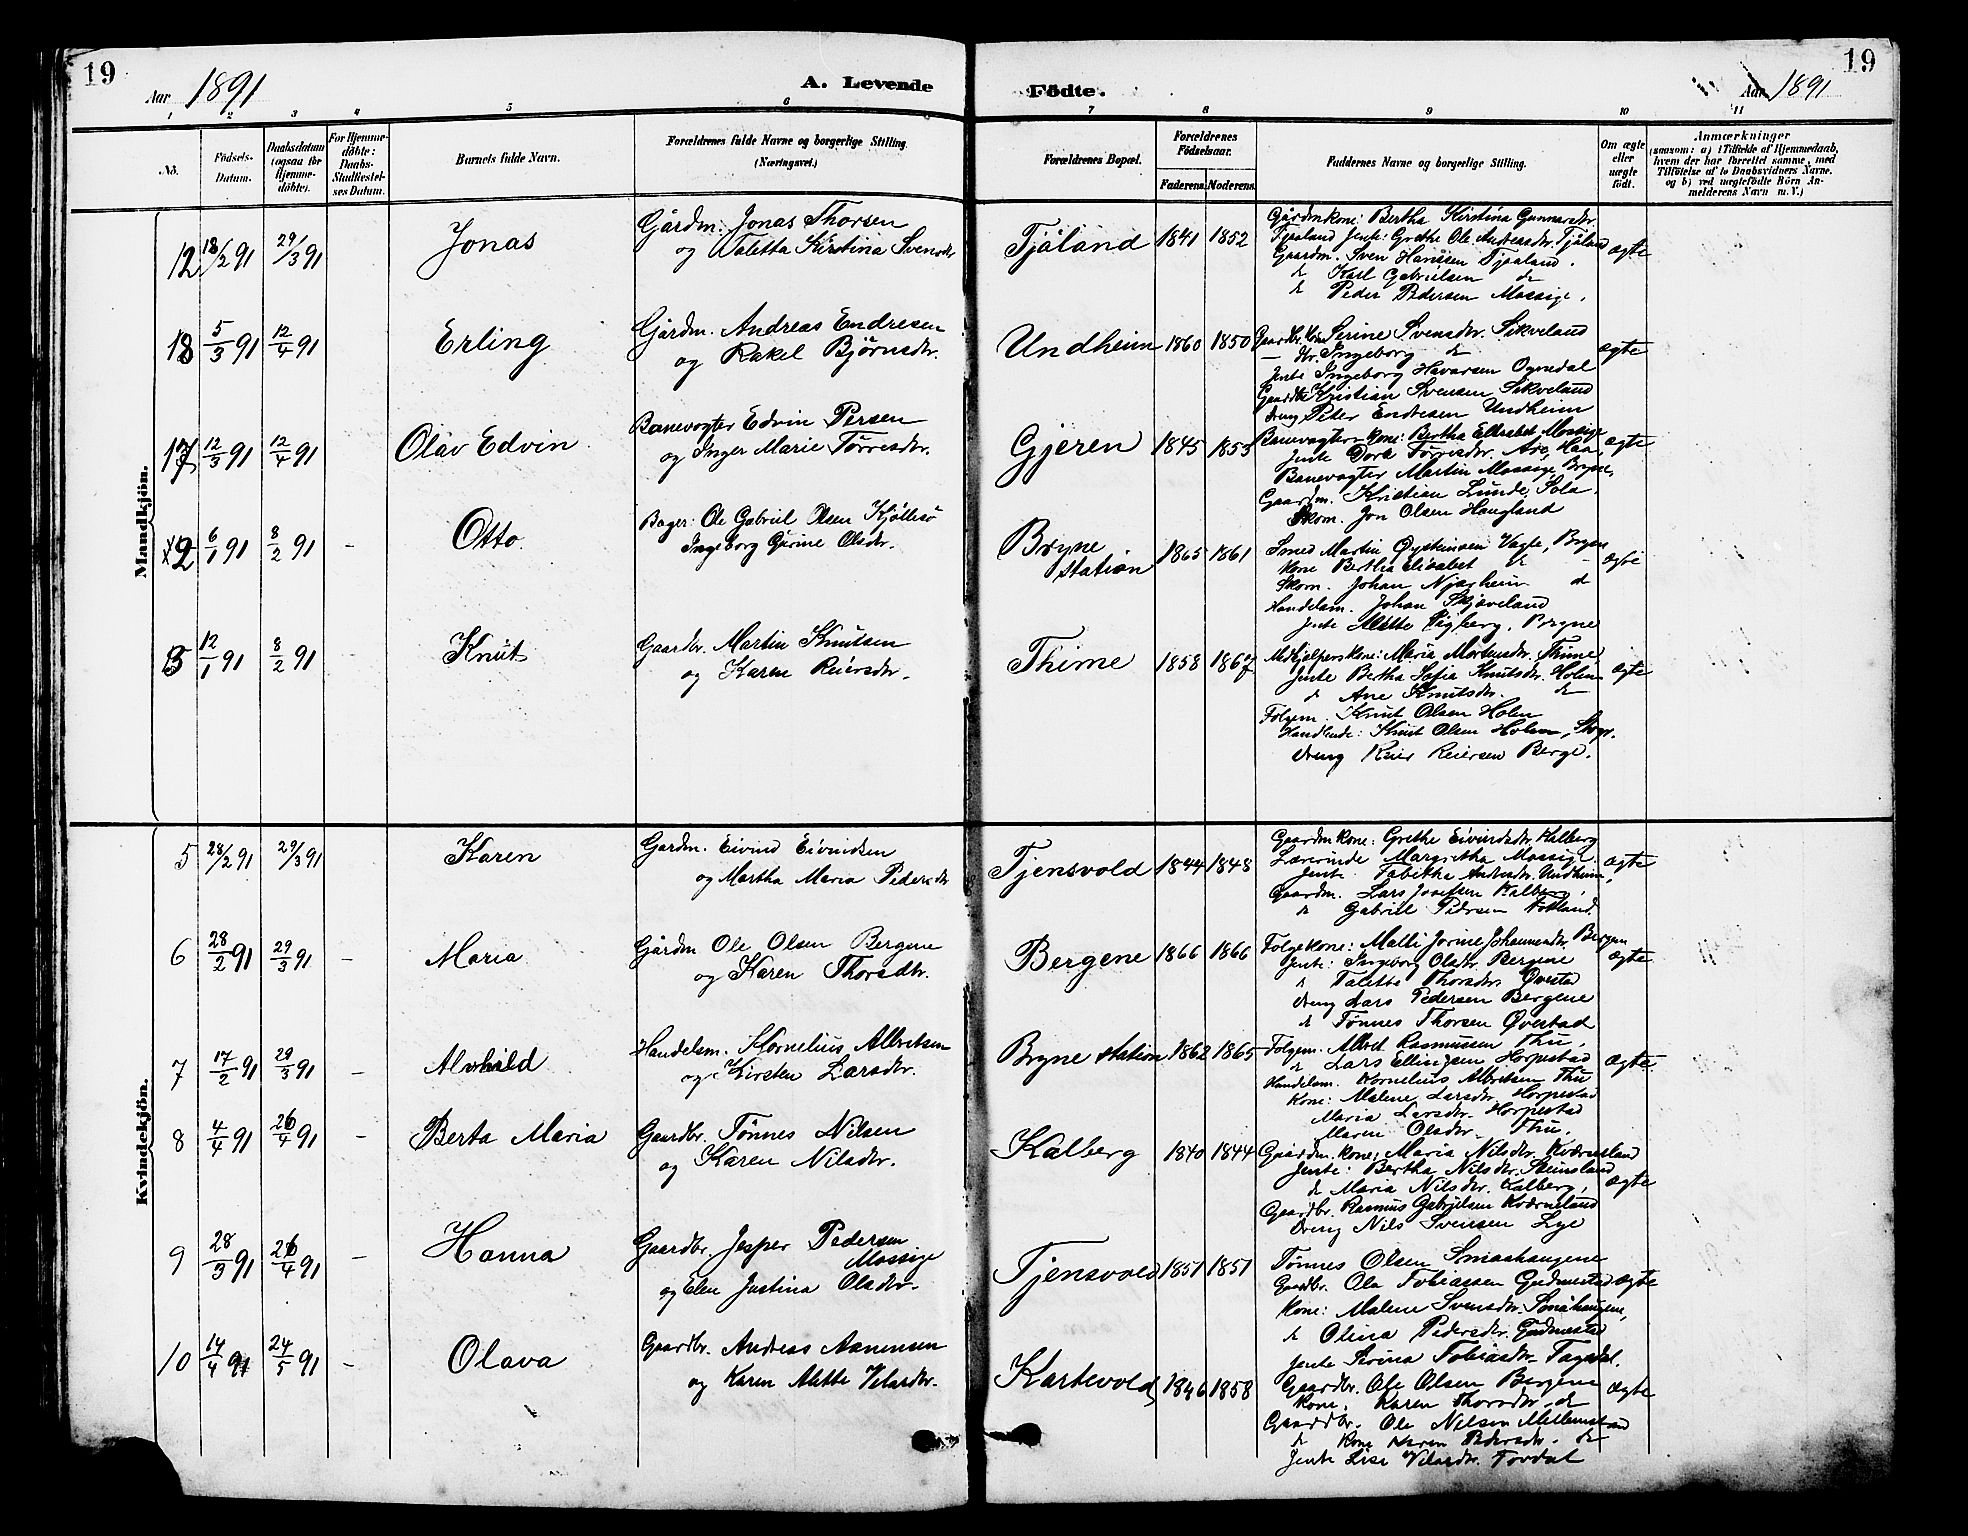 19
Aar 1891
A. Levende
Födte.
Aar 1891
19
1 2 3 4 5 6 7 8 9 10 11
No.
Födsels-Datum.
Daabsdatum (ogsaa for Hjemme-döbte).
For Hjemme-döbte: Daabs-Stadfæstel-ses Datum.
Barnets fulde Navn.
Forældrenes fulde Navne og borgerlige Stilling. (Næringsvei.)
Forældrenes Bopæl.
Forældrenes Födselsaar.
Faderens. Moderens.
Faddernes Navne og borgerlige Stilling.
Om ægte eller uægte födt.
Anmærkninger
(saasom: a) i Tilfælde af Hjemmedaab, hvem der har forrettet samme, med Tilföielse af to Daabsvidners Navne, og b) ved uægtefödte Börn An-melderens Navn m. V.)
Mandkjön.
12 18/2 91 29/3 91 Jonas
Gårdm. Jonas Thorsen
og Taletta Kirstina Svensdr
Tjåland 1841 1852
Gårdmkone: Bertha Kirstina Gunnarsdr.
Tjaaland Jente: Grethe Ole Andreasdr. Tjåland
Gaardm. Sven Hanssen Tjaaland.
d Karl Gabrielsen d
d Peder Pedersen Mossige.
ægte
18 5/3 91 12/4 91 Erling
Gårdm. Andreas Endresen
og Rakel Bjørnsdr.
Undheim 1860 1850
Gaardbr. kone Serine Svensdr. Sikveland
— dr. Ingeborg d
Jente Ingeborg Havarsen Ognedal
Gaardbr Kristian Svensen Sikveland
dreng Peter Endresen Undheim
ægte
17 12/3 91 12/4 91 Olav Edvin
Banevogter Edvin Persen
og Inger Marie Tørresdr.
Gjeren 1845 1853
Banevogter-kone: Bertha Elisabet Mossige
Jente Dora Tørresdr. Are, Haa,
Banevogter Martin Mossige, Bryne,
Gaardm. Kristian Lunde, Sola.
Skom. Jon Olsen Haugland
ægte
2 6/1 91 8/2 91 - Otto
Bager: Ole Gabriel Olsen Kjøllesø
Ingeborg Gurine Olsdr.
Bryne station 1865 1861
Smed Martin Øysteinsen Vagle, Bryne
Kone Bertha Elisabet d -
Skom. Johan Njærheim d
Handelsm. Johan Skjæveland
Jente Mette Sigberg, Bryne
ægte
3 12/1 91 8/2 91 - Knut
Gaardbr. Martin Knutsen
og Karen Reiersdr.
Thime 1858 1867
Medhjelperskone: Maria Mortensdr. Thime,
Jente Bertha Sofia Knutsdr. Holen
d Ane Knutsdr. d
Følgem. Knut Olsen Holen
Handlende: Knut Olsen Holen,
dreng Reier Reiersen Berge.
ægte
Kvindekjön.
5 28/2 91 29/3 91 Karen
Gardm. Eivind Eivindsen
og Martha Maria Pedersdr
Tjensvold 1844 1848
Gaardmkone: Grethe Eivindsdr. Kalberg
Lærerinde Margretha Mossige.
Jente. Tabitha Andrsdr. Undheim,
Gaardm. Lars Josefsen Kalberg,
d Gabriel Pedrsen Fotland.
ægte
6 28/2 91 29/3 91 - Maria
Gårdm Ole Olsen Bergene
og Karen Thorsdtr.
Bergene 1866 1866
Følgekone: Malli Jorine Johannesdr. Bergene
Jente: Ingeborg Olsdtr. Bergene
d Taletta Thorsdtr Øvestad
dreng Lars Pedersen Bergene
d Tønnes Thorsen Øvestad
ægte
7 17/2 91 29/3 91 - Alvhild
Handelsm. Kornelius Albretsen
og Kirsten Larsdtr.
Bryne station 1862 1865
Følgem. Albret Rasmussen Thu,
d Lars Ellingsen Horpestad
Handelsm. Kornelius Albretsen Thu
Kone: Malene Larsdtr. Horpestad
Maria Larsdtr. Horpestad
Maren Olsdtr. Thu.
ægte
8 4/4 91 26/4 91 - Berta Maria
Gaardbr. Tønnes Nilsen
og Karen Nilsdtr.
Kalberg 1840 1844
Gaardm. kone: Maria Nilsdtr. Kværneland
Jente: Bertha Nilsdtr. Steinsland
d Maria Nilsdtr. Kalberg,
Gaardbr. Rasmus Gabrielsen Kværneland
Dreng Nils Svensen Lye
ægte
9 28/3 91 26/4 91 - Hanna
Gaardbr. Jesper Pedersen
Mossige
og Elen Justina Olsdtr.
Tjensvold 1851 1851
Tønnes Olsen Smaahaugene
Gaardbr. Ola Tobiassen Gudmestad
Kone: Malene Svensdtr. Småhaugene,
d Olina Pedersdtr. Gudmestad
Jente Serina Tobiasdtr. Tagedal.
ægte
10 14/4 91 24/5 91 - Olava
Gaardbr. Andreas Aanensen
og Karen Alette Velasdtr.
Kartevold 1846 1858
Gaardbr. Ole Olsen Bergene
Kone. Karen Thorsdtr. d
Gaardbr. Ole Nilsen Mellemstrand
d Kone Karen Pedersdtr. d
Jente Lise Velasdtr. Fordal
ægte